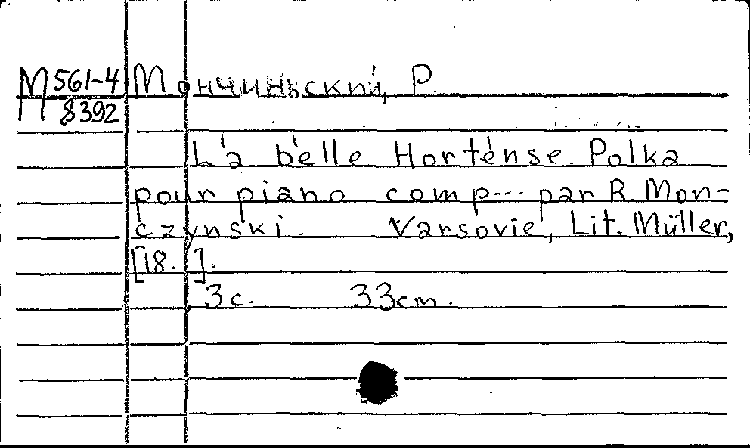 М 561-4 Мончиньский, Р
8392
La belle Hortense. Polka
pour piano comp... par R. Mon-
czynski. Varsovie, Lit. Müller,
[18. ].
3 с. 33 cm.